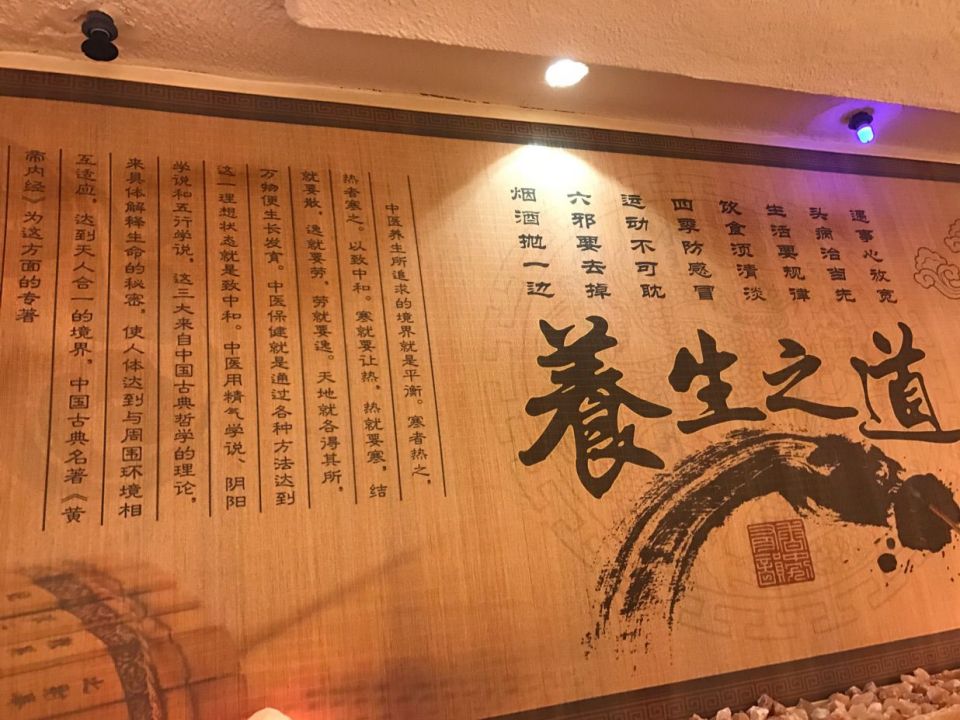 養生之道
遇事心放宽
头病治当先
生活要规律
饮食须清淡
四季防感冒
运动不可耽
六邪要去掉
烟酒抛一边
中医养生所追求的境界就是平衡。寒者热之,
热者寒之。以致中和。寒就要让热,热就要寒,结
就要散,逸就要劳,劳就要逸。天地就各得其所,
万物便生长发育。中医保健就是通过各种方法达到
这一理想状态就是致中和。中医用精气学说、阴阳
学说和五行学说,这三大来自中国古典哲学的理论,
来具体解释生命的秘密,使人体达到与周围环境相
互适应,达到天人合一的境界,中国古典名著《黄
帝内经》为这方面的专著